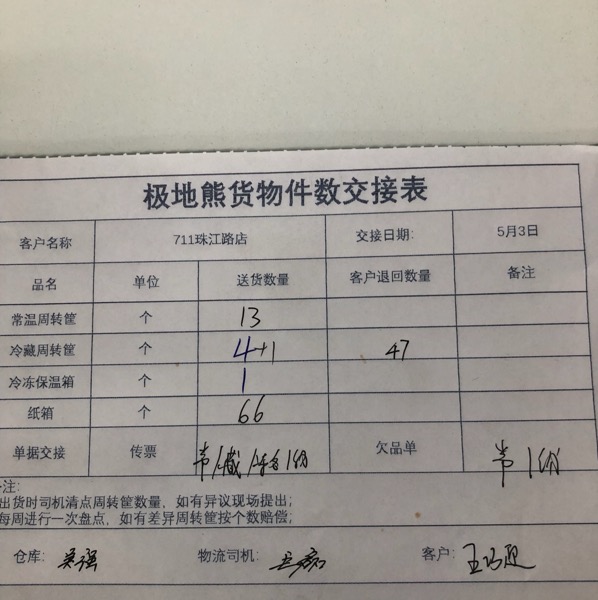 极地熊货物件数交接表
客户名称 711珠江路店 交接日期: 5月3日
品名 单位 送货数量 客户退回数量 备注
常温周转筐 个 13
冷藏周转筐 个 4+1 47
冷冻保温箱 个 1
纸箱 个 66
单据交接 传票 欠品单 常1份
备注:
出货时司机清点周转筐数量，如有异议现场提出;
每周进行一次盘点，如有差异周转筐按个数赔偿;
仓库: 吴强 物流司机: 客户: